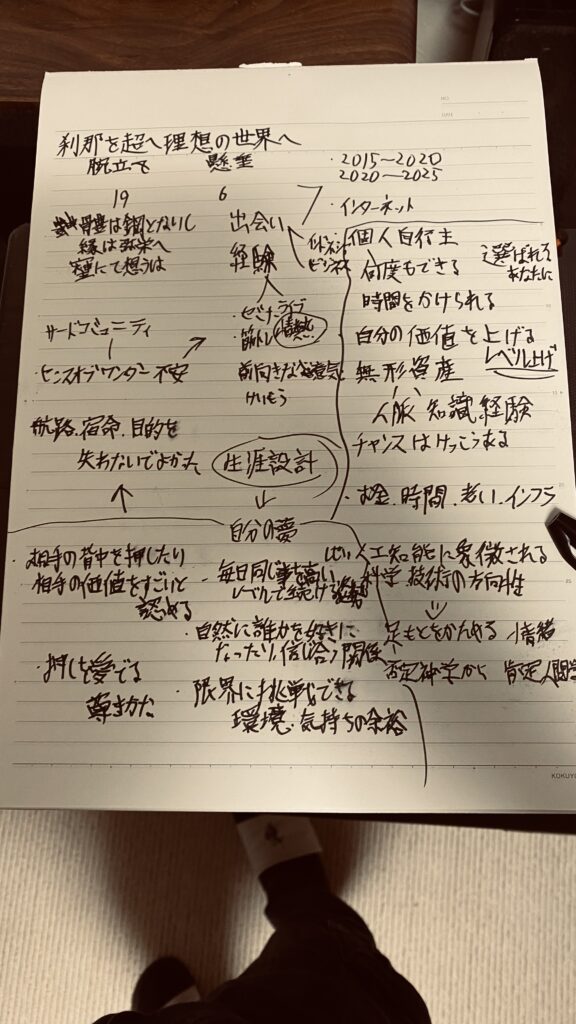 刹那を超へ理想の世界へ
腕立て 懸垂
19 6
骨髄は鋼とないし
縁は弥栄へ
窒にて想うは
サードコミュニティ
センスオブワンダー 不安
航路.宿命.目的を
失わないでよかった
出会い
経験
・セミナーライブ
・筋トレ 情熱
前向きな
けいもう
生涯設計
・2015〜2020
2020〜2025
・インターネット
ビジネス
個人自行主
何度もできる
時間をかけられる
選ばれる
あなたに
自分の価値を上げる
レベル上げ
無形資産
人脈 知識 経験
チャンスはけっこうある
・お金.時間.老い.インフラ
自分の夢
・毎日同じ事を高い
レベルで続ける
・自然に誰かを好きに
なったり.信じ合う関係
・限界に挑戦できる
環境.気持ちの余裕
・相手の背中を押したり
相手の価値をすごいと
認める
・押しを愛でる
尊きかた
人工知能に象徴される
科学技術の方向性
足もとをかためる 情緒
否定神学から 肯定人間学
NO.
DATE
KOKUYO